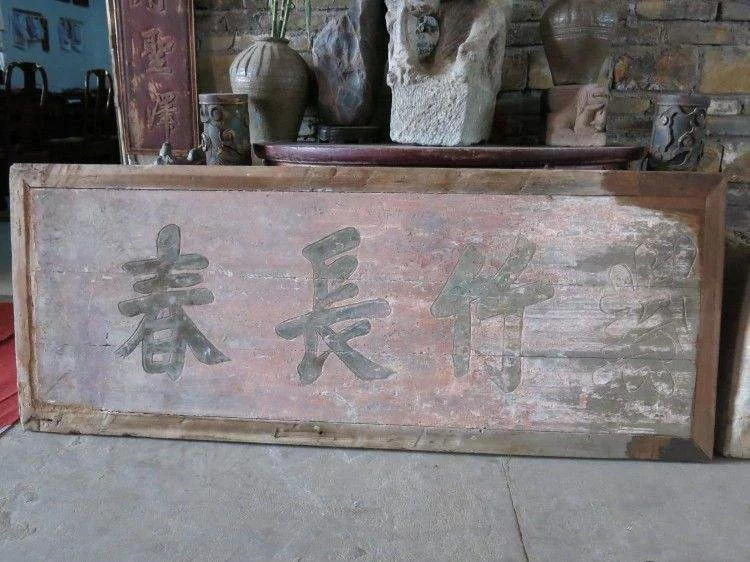 聖澤
竹長春